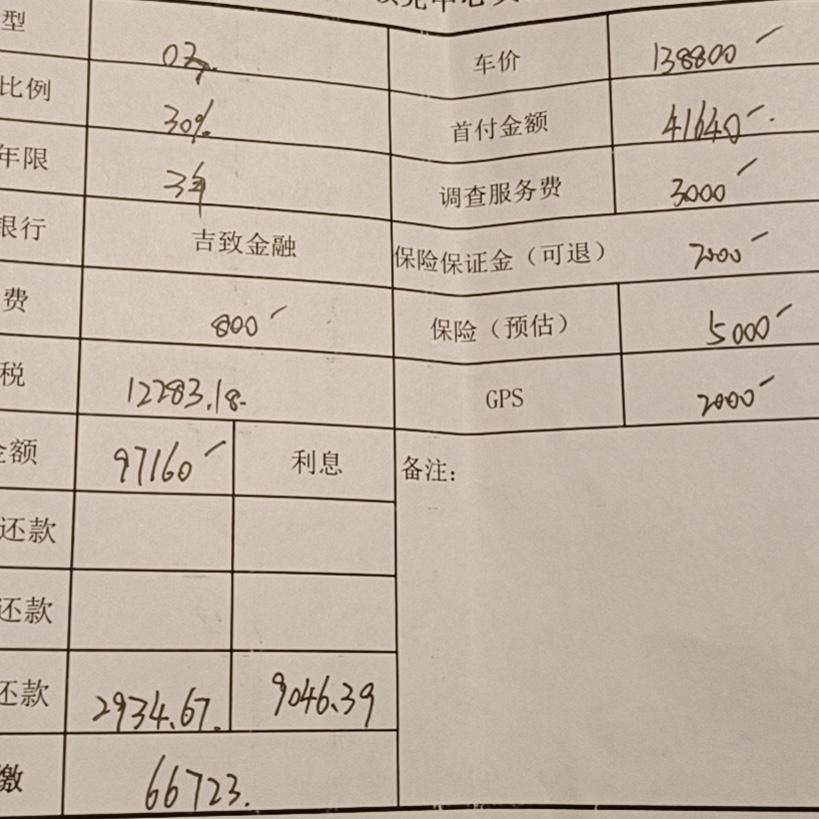 型 03 车价 138800
比例 30% 首付金额 41640
年限 3年 调查服务费 3000
银行 吉致金融 保险保证金（可退） 2000
费 800 保险（预估） 5000
税 12283.18 GPS 2000
金额 97160 利息 备注：
还款
还款
还款 2934.67. 9046.39
缴 66723.